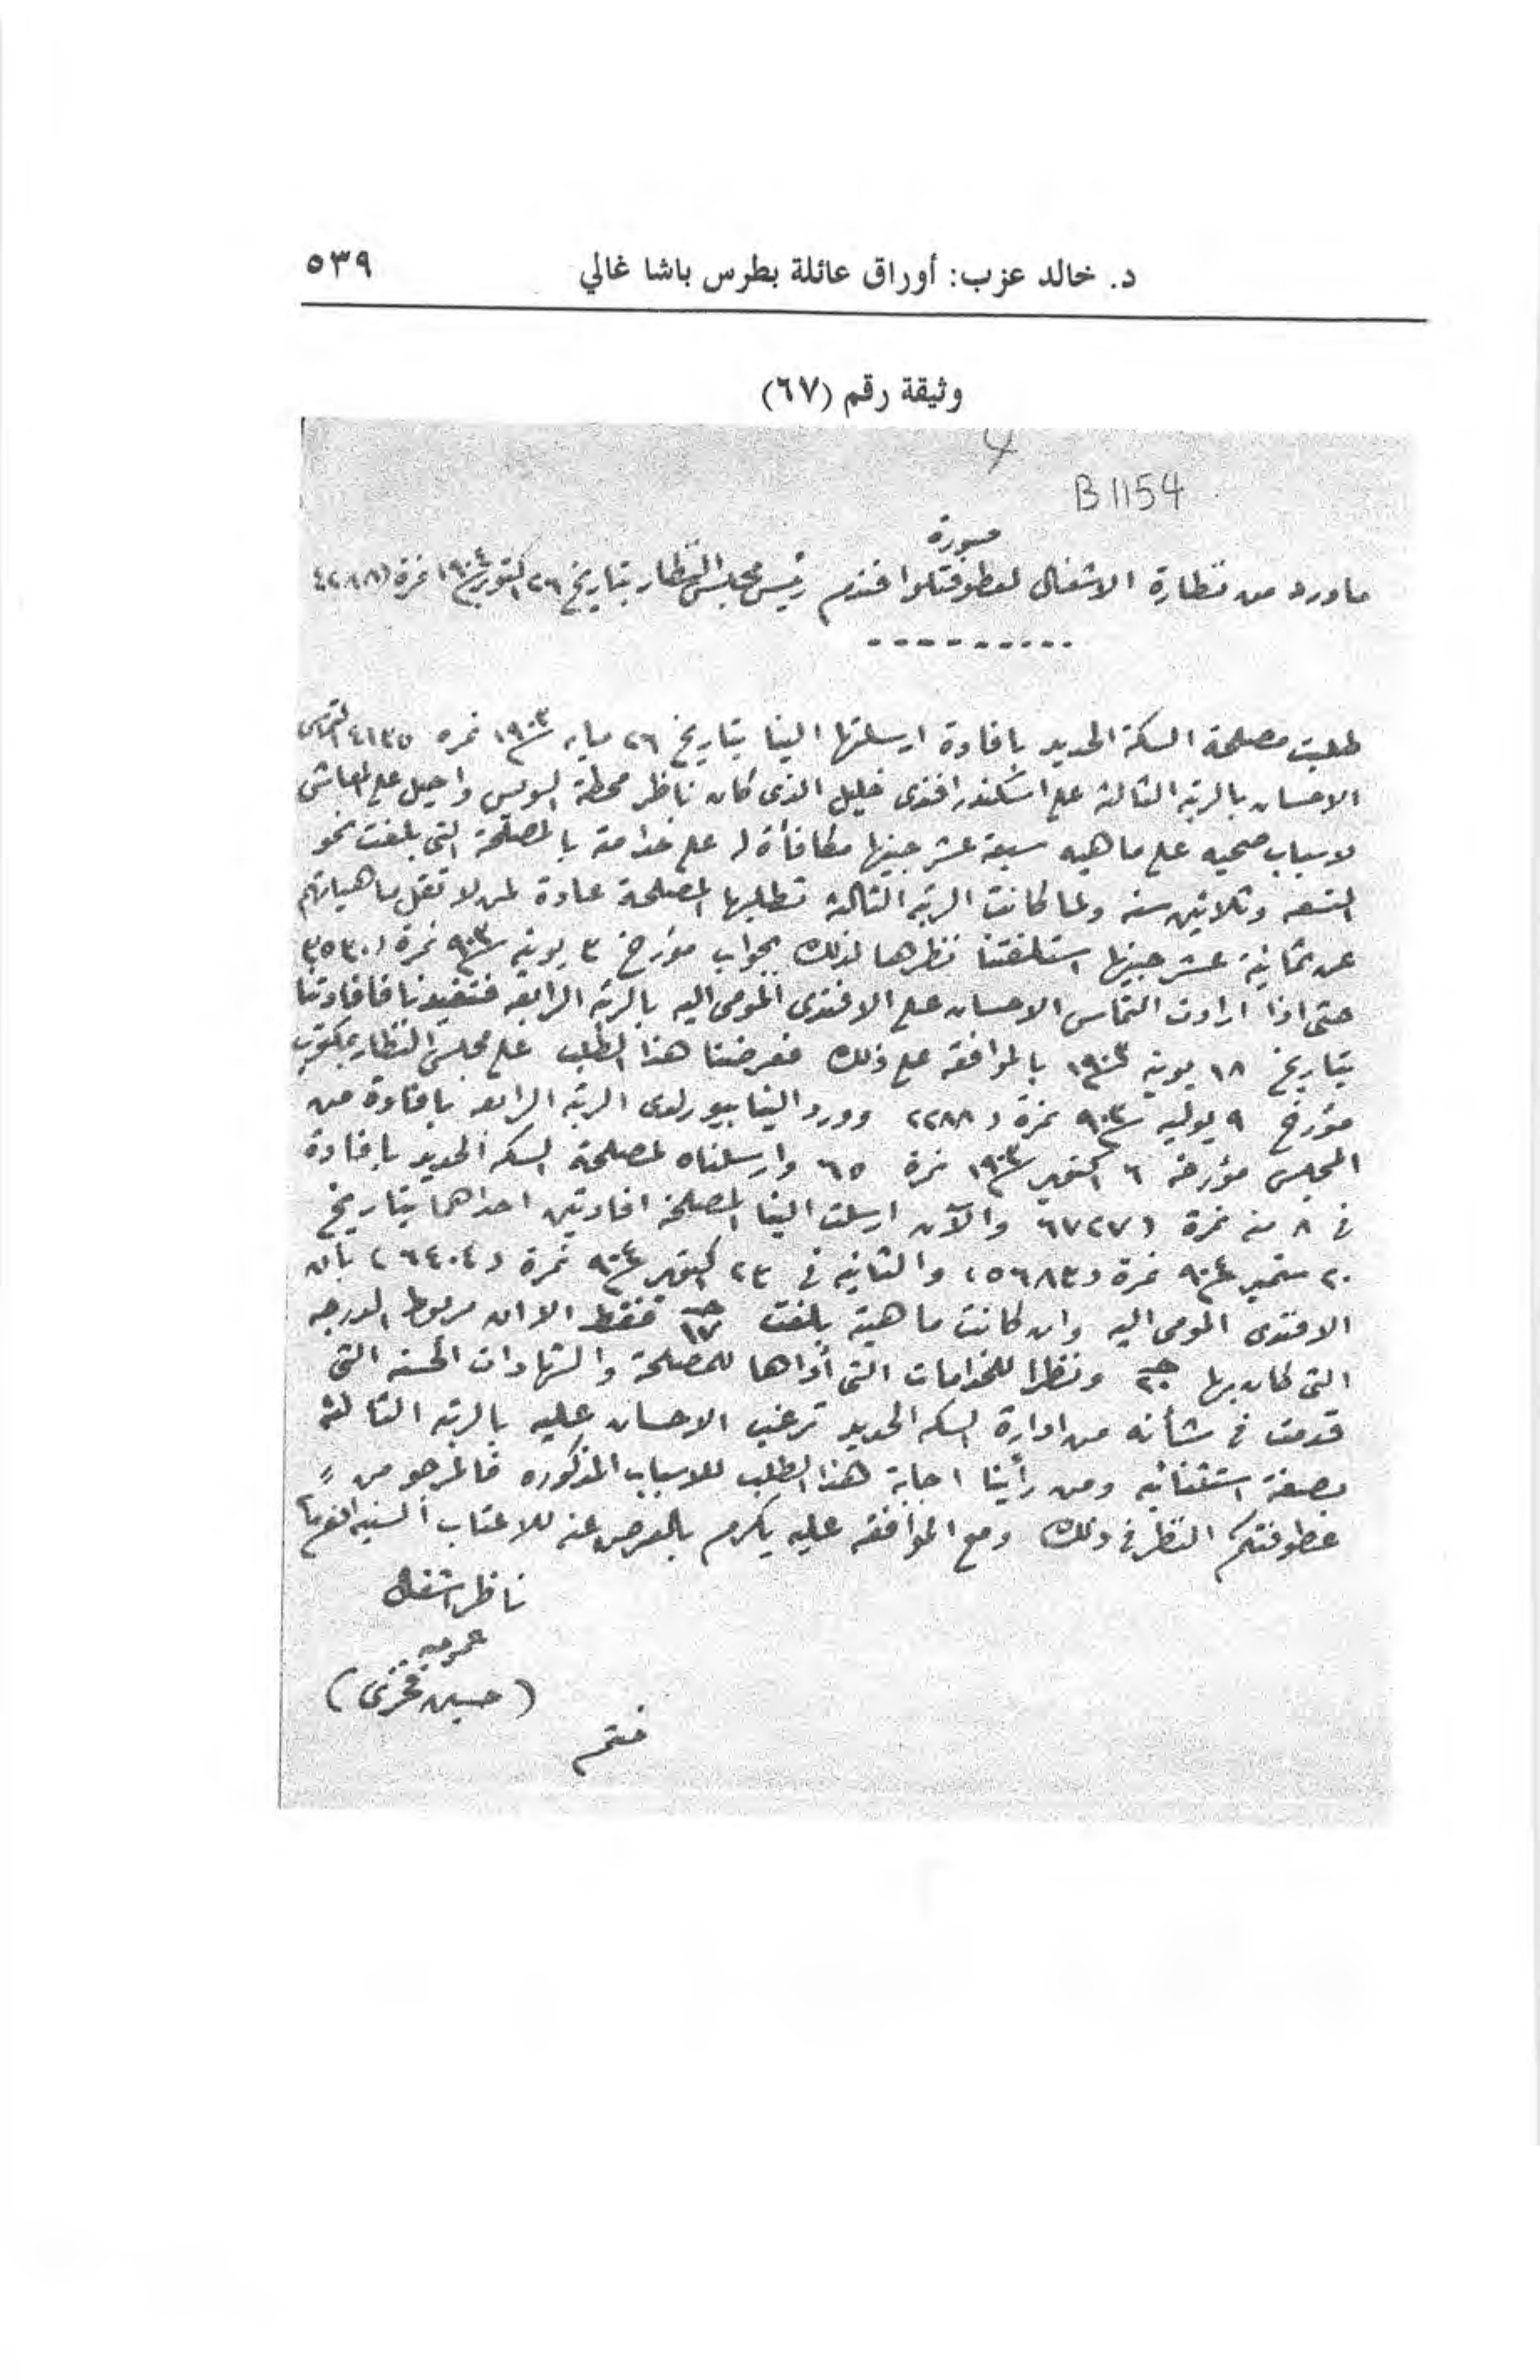 د. خالد عزب: أوراق عائلة بطرس باشا غالي ٥٣٩
وثيقة رقم (٦٧)
B 1154
صورة
ما ورد من نظارة الاشغال لعطوفتلو افندم رئيس مجلس النظار بتاريخ ٢٦ اكتوبر سنة ١٩٠٤ نمرة
طلبت مصلحة السكة الحديد بافادة ارسلتها الينا بتاريخ ٢٦ مايه سنة ١٩٠٣ نمره ٤١٣٥ التماس
الاحسان بالرتبه الثالثة على اسكندر افندى خليل الذى كان ناظر محطة السويس واحيل على المعاش
لاسباب صحيه على ماهيه سبعة عشر جنيها مكافأة له على خدامته بالمصلحة التى بلغت نحو
التسعه وثلاثين سنه ولما كانت الرتبه الثالثة تطلبها المصلحة عادة لمن لا تقل ماهياتهم
عن ثمانية عشر جنيها استلفتنا نظرها لذلك بجواب مؤرخ ٣ يونيه سنة ٩٠٣ نمرة (٣٥٣٠)
حتى اذا ارادت التماس الاحسان على الافندى المومى اليه بالرتبه الرابعه فتفيدنا فافادتنا
بتاريخ ١٨ يونيه سنة ١٩٠٣ بالموافقه على ذلك فعرضنا هذا الطلب على مجلس النظار بمكتوب
مؤرخ ٩ يوليه سنة ٩٠٣ نمرة (٢٢٨٨ وورد الينا بيورلدى الرتبه الرابعه بافادة من
المجلس مؤرخة ٦ اكتوبر سنة ١٩٠٣ نمرة ٦٥ وارسلناه لمصلحة السكه الحديد بافادة
فى ٨ منه نمرة (٦٧٢٧ والآن ارسلت الينا المصلحة افادتين احداهما بتاريخ
٢٠ ستمبر سنة ٩٠٤ نمرة (٥٦٨٣) والثانيه فى ٢٣ اكتوبر سنة ٩٠٤ نمرة (٦٤٠٤) بأن
الافندى المومى اليه وان كانت ماهيته بلغت ١٧ جـ فقط الا ان مربوط الدرجه
التى كان بها ٢٠ جـ ونظرا للخدامات التى أداها للمصلحة والشهادات الحسنه التى
قدمت فى شأنه من ادارة السكه الحديد ترغب الاحسان عليه بالرتبه الثالثة
بصفة استثنائيه ومن رأينا اجابة هذا الطلب للاسباب المذكوره فالمرجو من
عطوفتكم النظر فى ذلك ومع الموافقه عليه يكرم بالعرض عنه للاعتاب السنيه
ناظر اشغال
عموميه
(حسين فخرى)
ختم